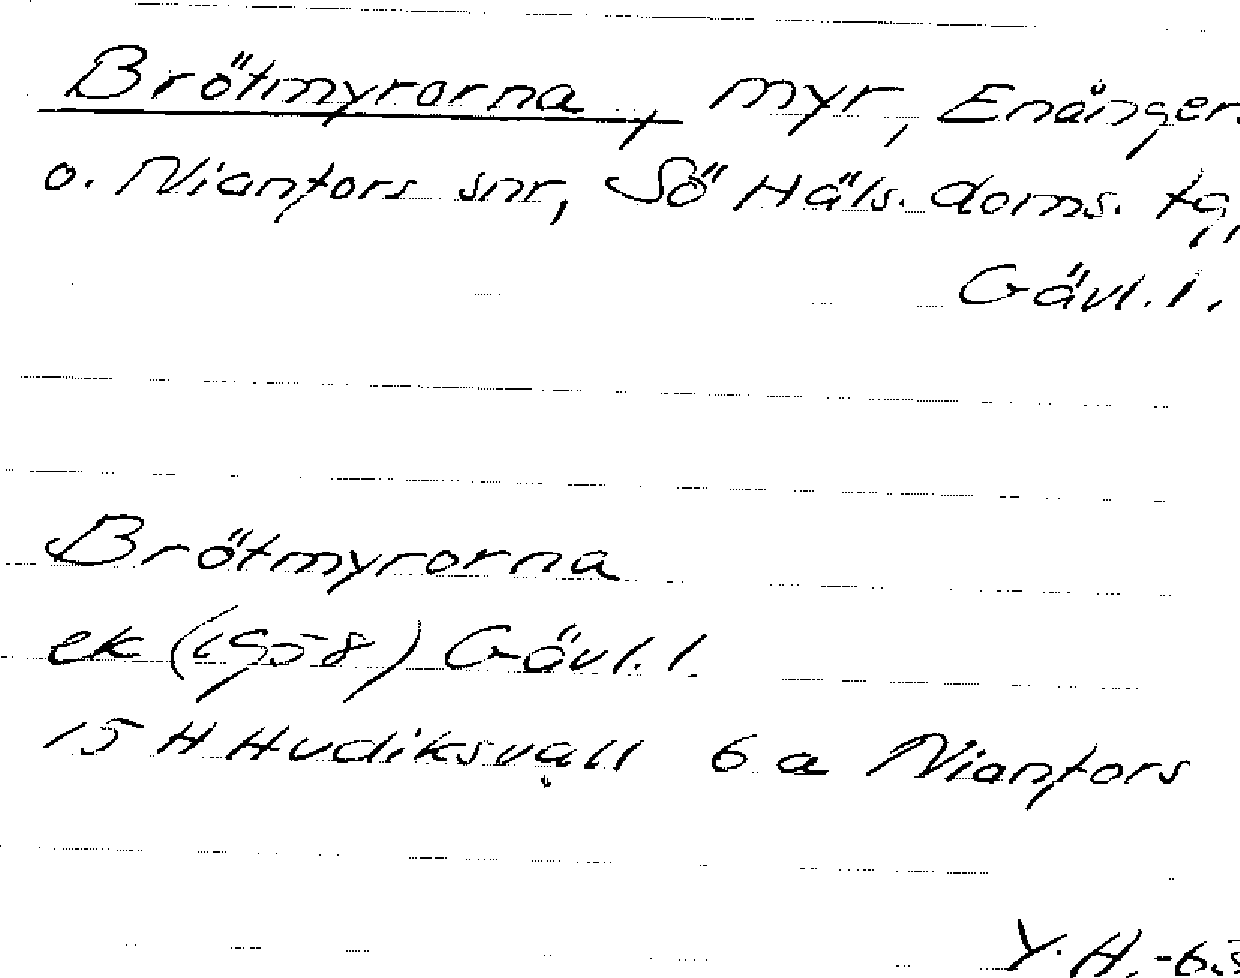 Brötmyrorna, myr, Enånger
o. Nianfors snr, Sö Häls. doms. tg,
Gävl. l.
Brötmyrorna
ek (1958) Gävl. l.
15 H Hudiksvall 6 a Nianfors
Y. H. -6